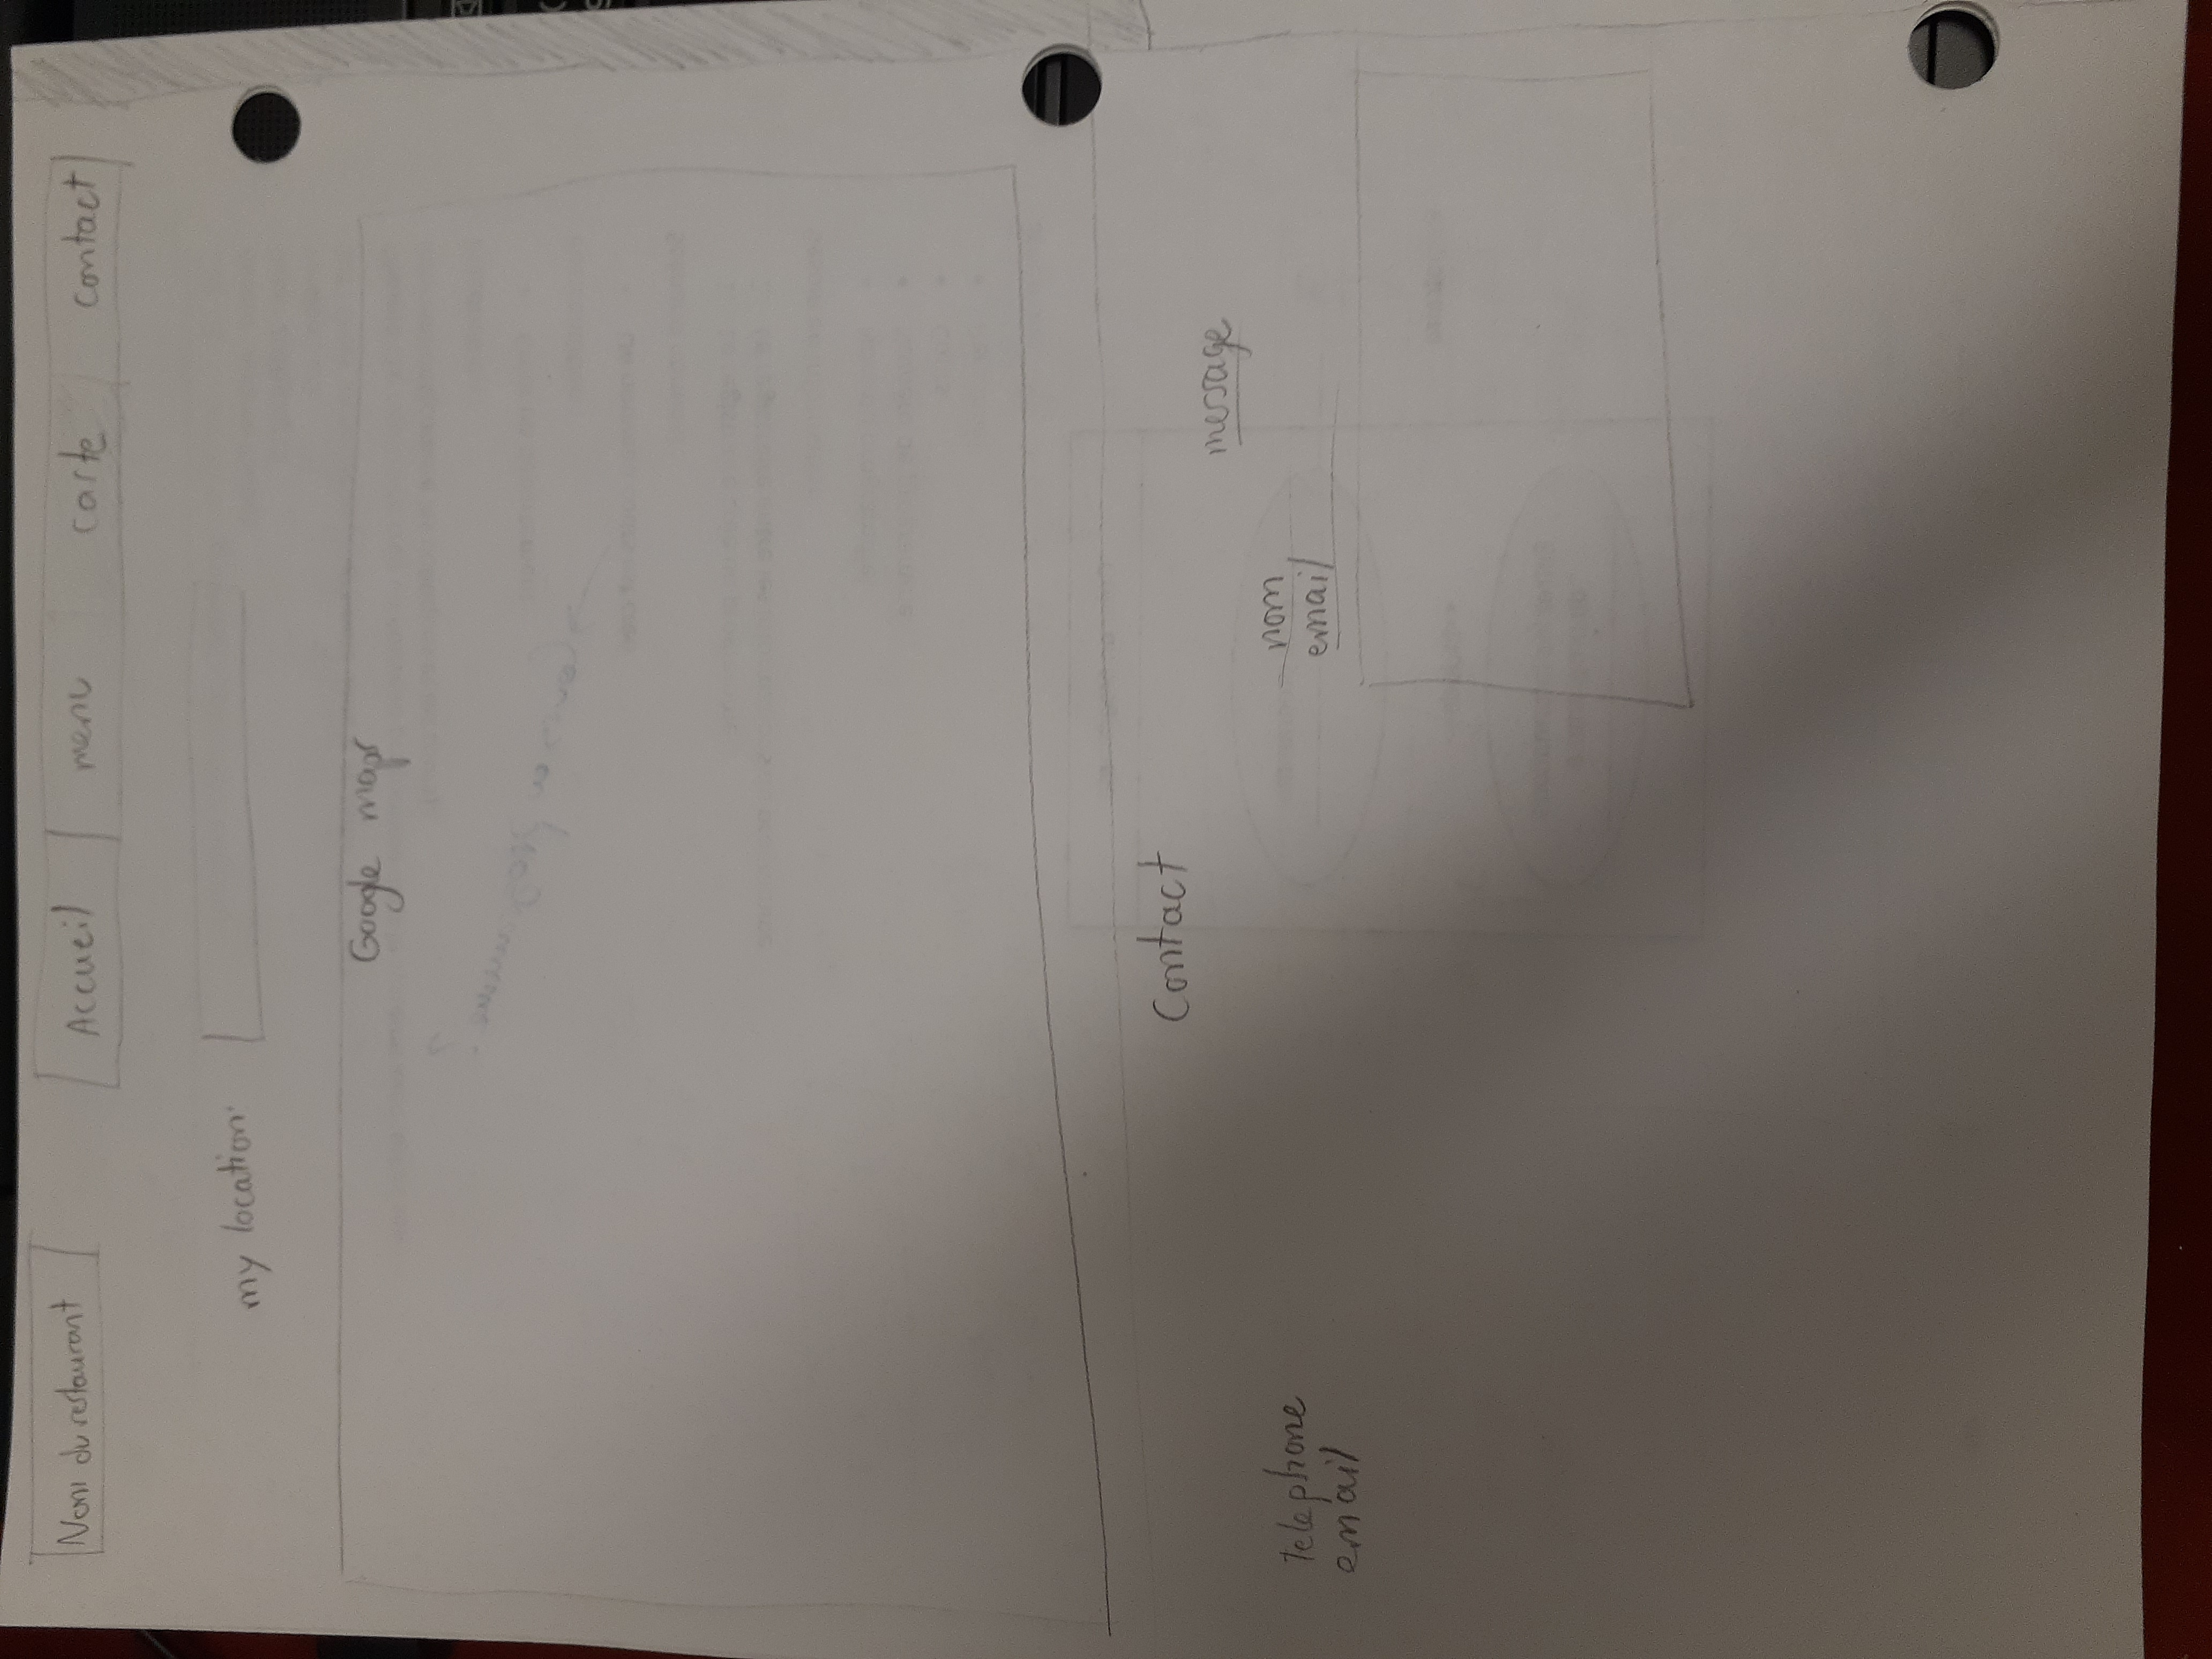 Nom du restaurant
Accueil menu carte contact
my location
Google maps
Contact
message
telephone
nom
email
email